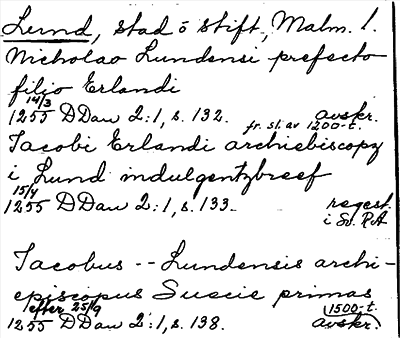 Lund, stad o stift, Malm. l.
Nicholao Lundensi prefecto
filio Erlandi
14/3
1255 DDan 2:1, s. 132. avskr.
fr. sl. av 1200-t.
Jacobi Erlandi archiebiscopy
i Lund indulgentzbreef
15/4
1255 DDan 2:1, s. 133. regest
i Sv. R.A
Jacobus -- Lundensis archi-
episcopus Suecie primas
efter 25/9 1500-t.
1255 DDan 2:1, s. 138. avskr.